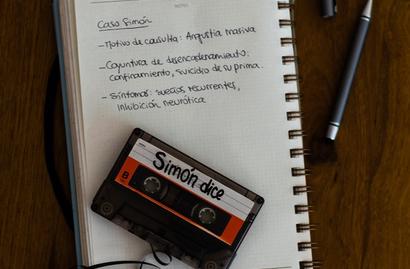 NOTES
Caso Simón
- Motivo de consulta: Angustia masiva
- Coyuntura de desencadenamiento:
confinamiento, suicidio de su prima.
- Síntomas: sueños recurrentes,
inhibición neurótica
Simón dice
B